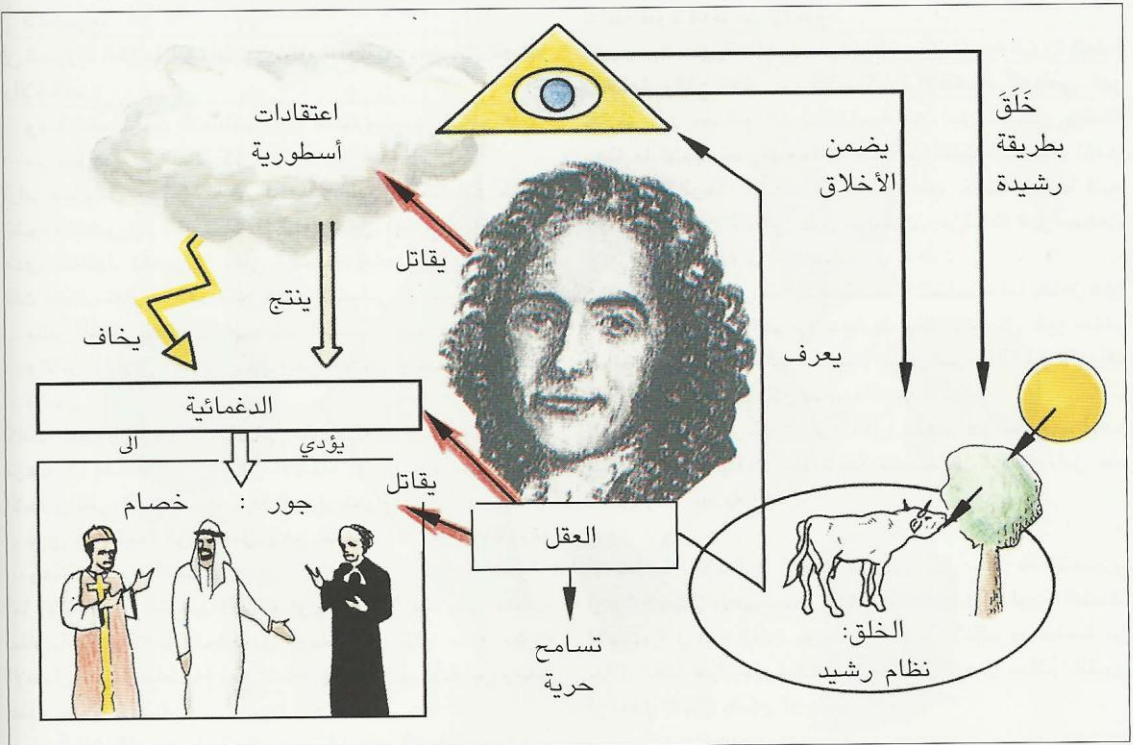 خَلَقَ
بطريقة
رشيدة
يضمن
الأخلاق
اعتقادات
أسطورية
يقاتل
ينتج
يخاف
يعرف
الدغمائية
يؤدي
الى
يقاتل
جور : خصام
العقل
تسامح
حرية
الخلق:
نظام رشيد